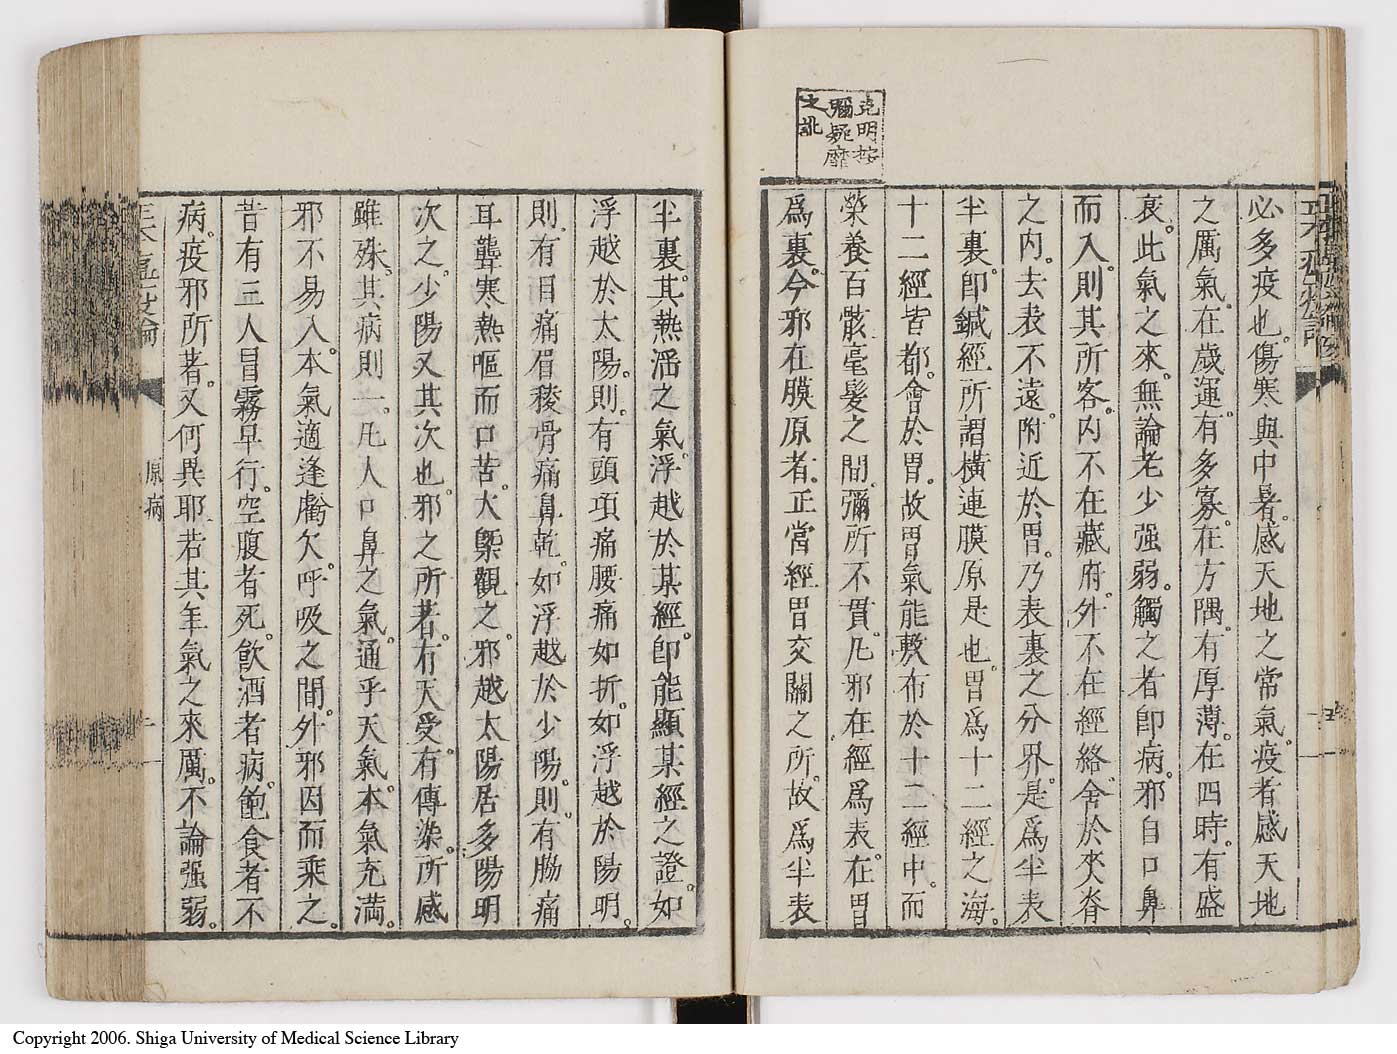 克明按
彌疑靡
之訛
必多疫也。傷寒與中暑。感天地之常氣。疫者感天地
之厲氣。在歲運。有多寡。在方隅。有厚薄。在四時。有盛
衰。此氣之來。無論老少强弱。觸之者卽病。邪自口鼻
而入。則其所客。内不在藏府。外不在經絡。舍於夾脊
之内。去表不遠。附近於胃。乃表裏之分界。是爲半表
半裏。卽鍼經所謂橫連膜原是也。胃爲十二經之海。
十二經皆都會於胃。故胃氣能敷布於十二經中。而
榮養百骸毫髮之間。彌所不貫。凡邪在經爲表。在胃
爲裏。今邪在膜原者。正當經胃交關之所。故爲半表
半裏。其熱淫之氣。浮越於某經。卽能顯某經之證。如
浮越於太陽。則。有頭項痛腰痛如折。如浮越於陽明。
則。有目痛眉稜骨痛鼻乾。如浮越於少陽。則。有脇痛
耳聾寒熱嘔而口苦。大槩觀之。邪越太陽居多。陽明
次之。少陽又其次也。邪之所著。有天受。有傳染。所感
雖殊。其病則一。凡人口鼻之氣。通乎天氣。本氣充滿。
邪不易入。本氣適逢虧欠。呼吸之間。外邪因而乘之。
昔有三人冒霧早行。空腹者死。飮酒者病。飽食者不
病。疫邪所著。又何異耶。若其年氣之來厲。不論强弱。
原病